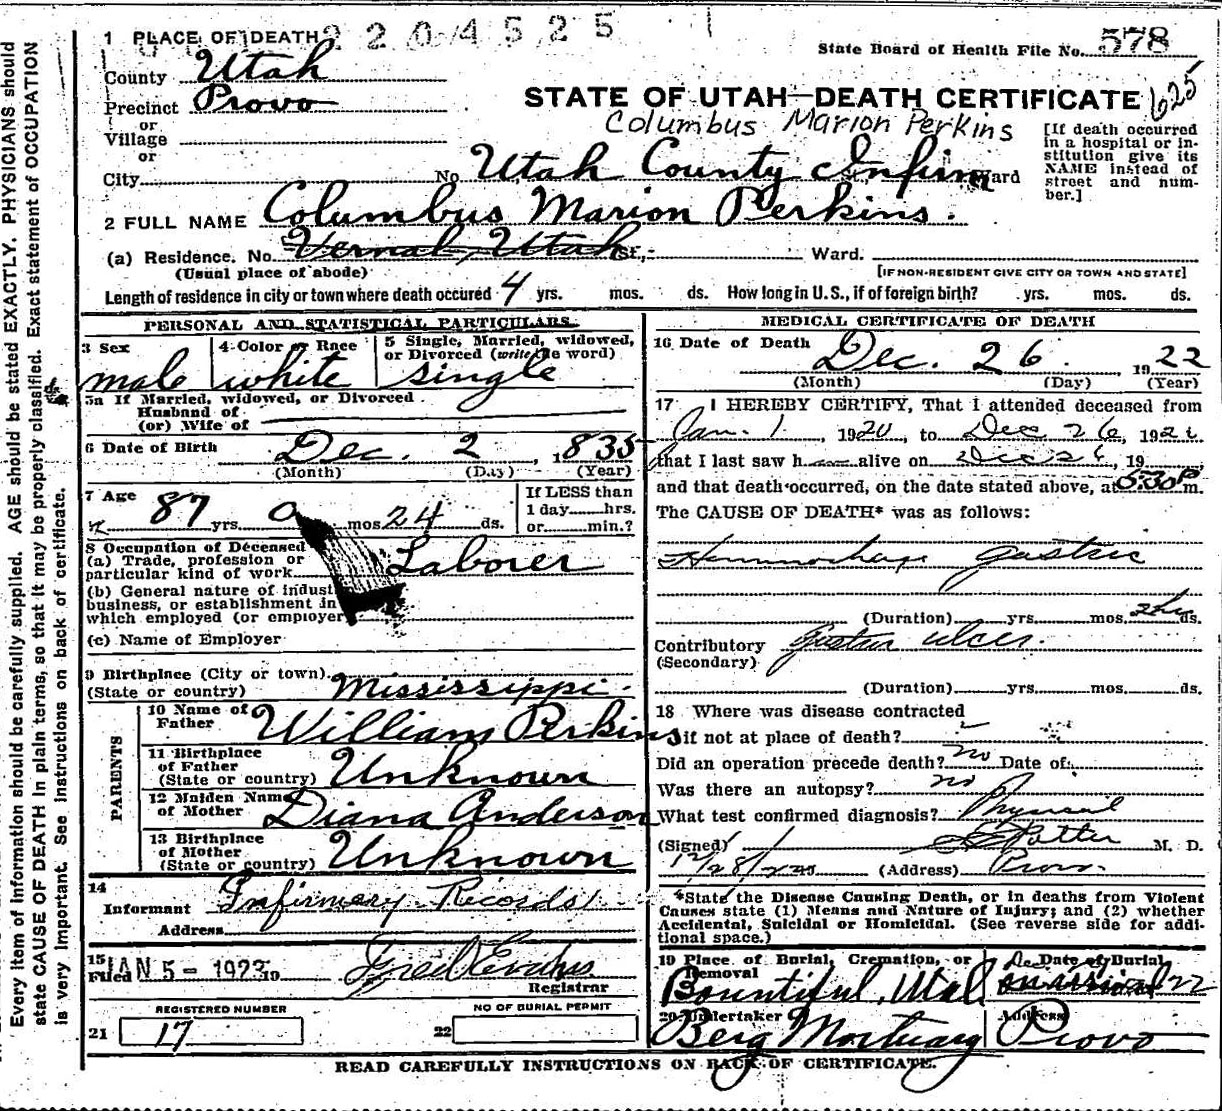 2204525
578
1 PLACE OF DEATH
State Board of Health File No. 578
County Utah
Precinct Provo
or
Village
or
STATE OF UTAH—DEATH CERTIFICATE 625
Columbus Marion Perkins
[If death occurred in a hospital or institution give its NAME instead of street and number.]
City No. Utah County Infirm Ward
2 FULL NAME Columbus Marion Perkins.
(a) Residence. No. Vernal, Utah St., Ward.
(Usual place of abode) [IF NON-RESIDENT GIVE CITY OR TOWN AND STATE]
Length of residence in city or town where death occured 4 yrs. mos. ds. How long in U. S., if of foreign birth? yrs. mos. ds.
PERSONAL AND STATISTICAL PARTICULARS.
3 Sex 4 Color or Race 5 Single, Married, widowed, or Divorced (write the word)
male white single
5a If Married, widowed, or Divorced
Husband of
(or) Wife of
6 Date of Birth Dec. 2, 1835
(Month) (Day) (Year)
7 Age If LESS than
87 yrs 0 mos 24 ds. 1 day hrs.
or min.?
8 Occupation of Deceased
(a) Trade, profession or
particular kind of work Laborer
(b) General nature of indust
business, or establishment in
which employed (or employer
(c) Name of Employer
9 Birthplace (City or town).
(State or country) Mississippi.
PARENTS
10 Name of
Father William Perkins
11 Birthplace
of Father
(State or country) Unknown
12 Maiden Name
of Mother Diana Anderson
13 Birthplace
of Mother
(State or country) Unknown
14
Informant Infirmary Records
Address
15
Filed JAN 5 - 1923 19 Fred Evans
Registrar
REGISTERED NUMBER NO OF BURIAL PERMIT
21 17 22
MEDICAL CERTIFICATE OF DEATH
16 Date of Death Dec. 26, 1922
(Month) (Day) (Year)
17 I HEREBY CERTIFY, That I attended deceased from
Jan. 1, 1920, to Dec 26, 192
that I last saw h alive on Dec 26, 19
and that death occurred, on the date stated above, at 5:30 P m.
The CAUSE OF DEATH* was as follows:
Hemmorhage gastric
(Duration) yrs. mos. ds.
Contributory Gastric ulcer.
(Secondary)
(Duration) yrs. mos. ds.
18 Where was disease contracted
if not at place of death?
Did an operation precede death? no Date of:
Was there an autopsy? no
What test confirmed diagnosis? Physical
(Signed) Potter M. D.
12/28/ (Address) Provo.
*State the Disease Causing Death, or in deaths from Violent
Causes state (1) Means and Nature of Injury; and (2) whether
Accidental, Suicidal or Homicidal. (See reverse side for additional space.)
19 Place of Burial, Cremation, or Removal Date of Burial
Bountiful, Utah 22
20 Undertaker Address
Berg Mortuary Provo
READ CAREFULLY INSTRUCTIONS ON BACK OF CERTIFICATE.
Every item of information should be carefully supplied. AGE should be stated EXACTLY. PHYSICIANS should
state CAUSE OF DEATH in plain terms, so that it may be properly classified. Exact statement of OCCUPATION
is very important. See instructions on back of certificate.